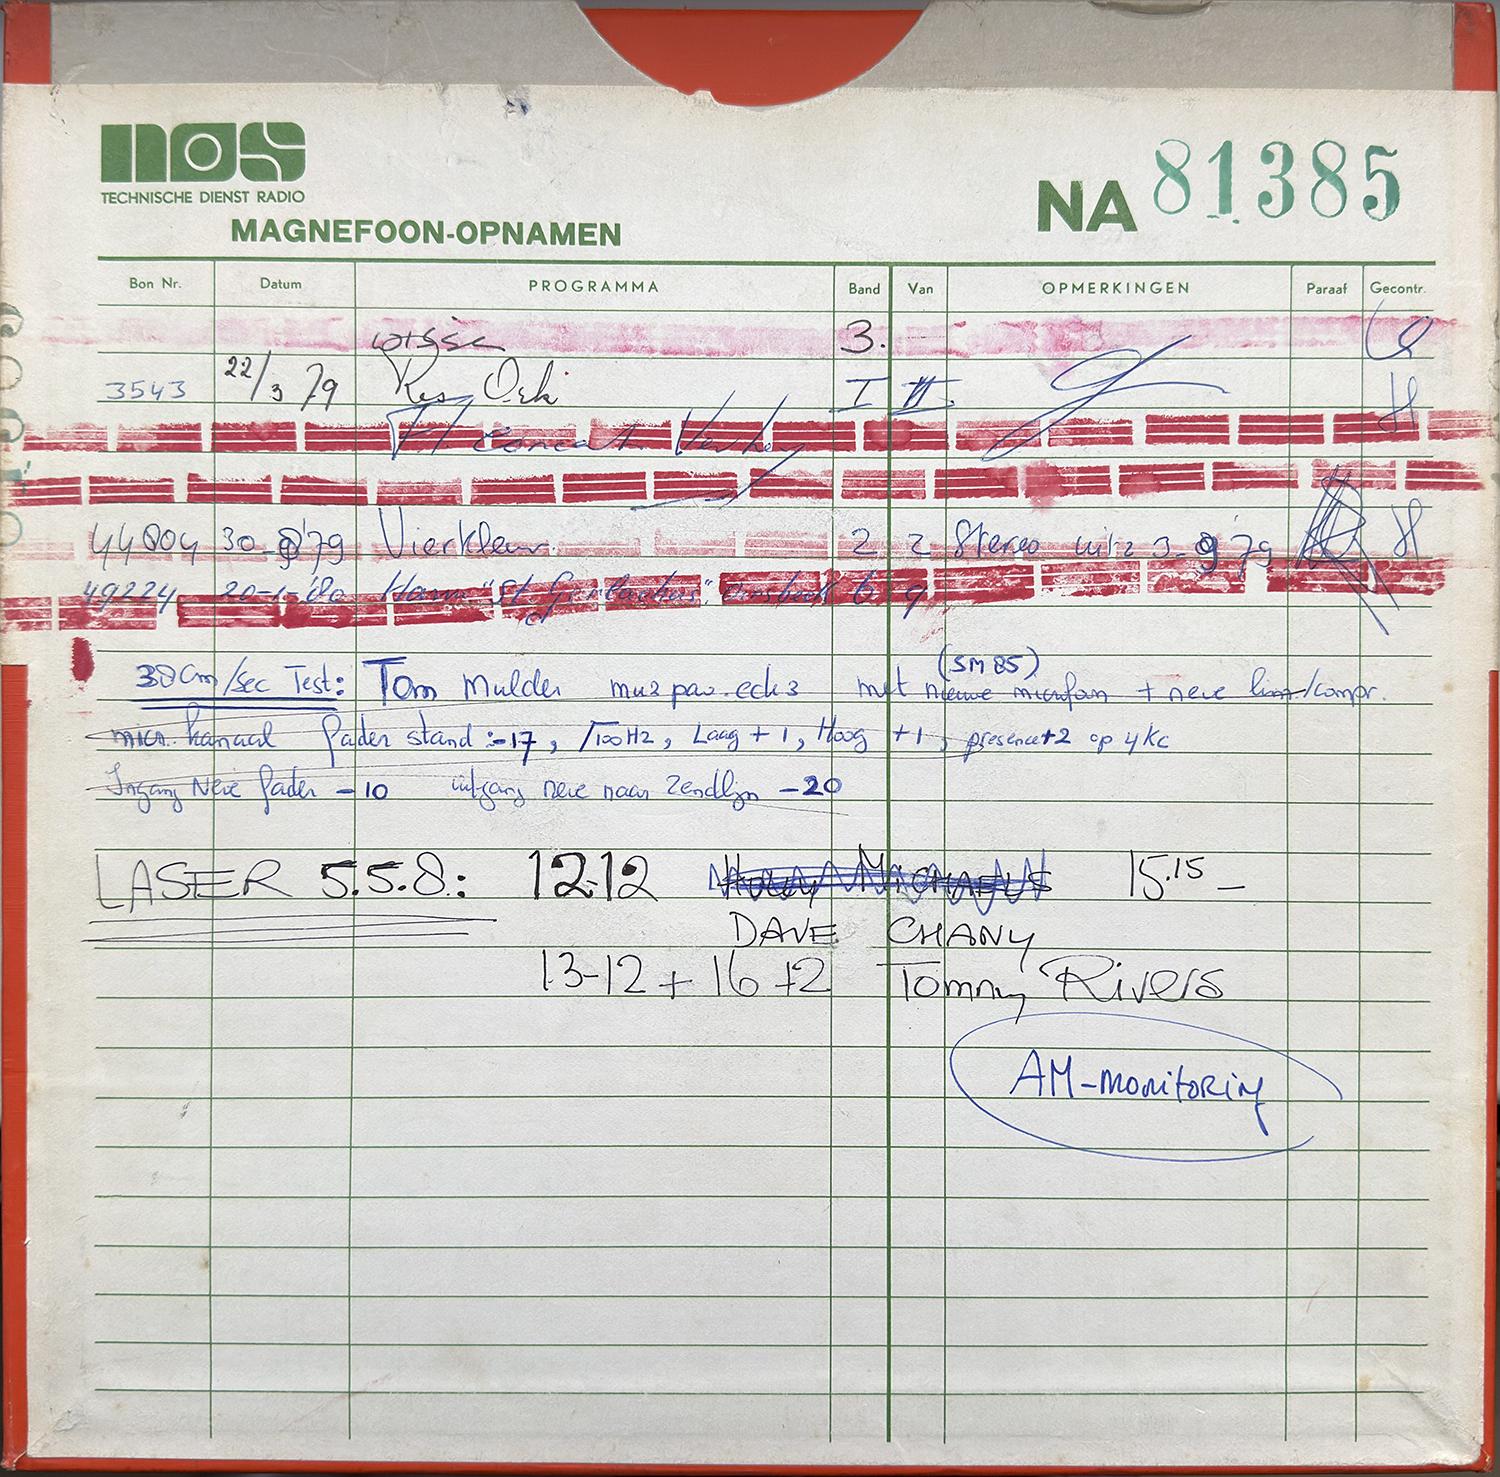 nos
TECHNISCHE DIENST RADIO
MAGNEFOON-OPNAMEN
NA 81385
Bon Nr. Datum PROGRAMMA Band Van OPMERKINGEN Paraaf Gecontr.
3.
3543 22/3 79 Res Ork I II
44004 30-8'79 Vierkleur. 2 2 Stereo uitz 3-9 79
49224 20-1-'80 Harm "St. Gerlachus". 6 9
(SM 85)
38cm/sec Test: Tom Mulder muz pav. ech 3 met nieuwe microfoon + neve lim/compr.
micr. kanaal fader stand :-17, 100Hz, Laag +1, Hoog +1, presence+2 op 4Kc
Ingang Neve fader -10 uitgang neve naar Zendlijn -20
LASER 5.5.8.: 12-12 Holly Michaels 15.15 -
DAVE CHANY
13-12 + 16 +2 Tommy Rivers
AM-monitoring